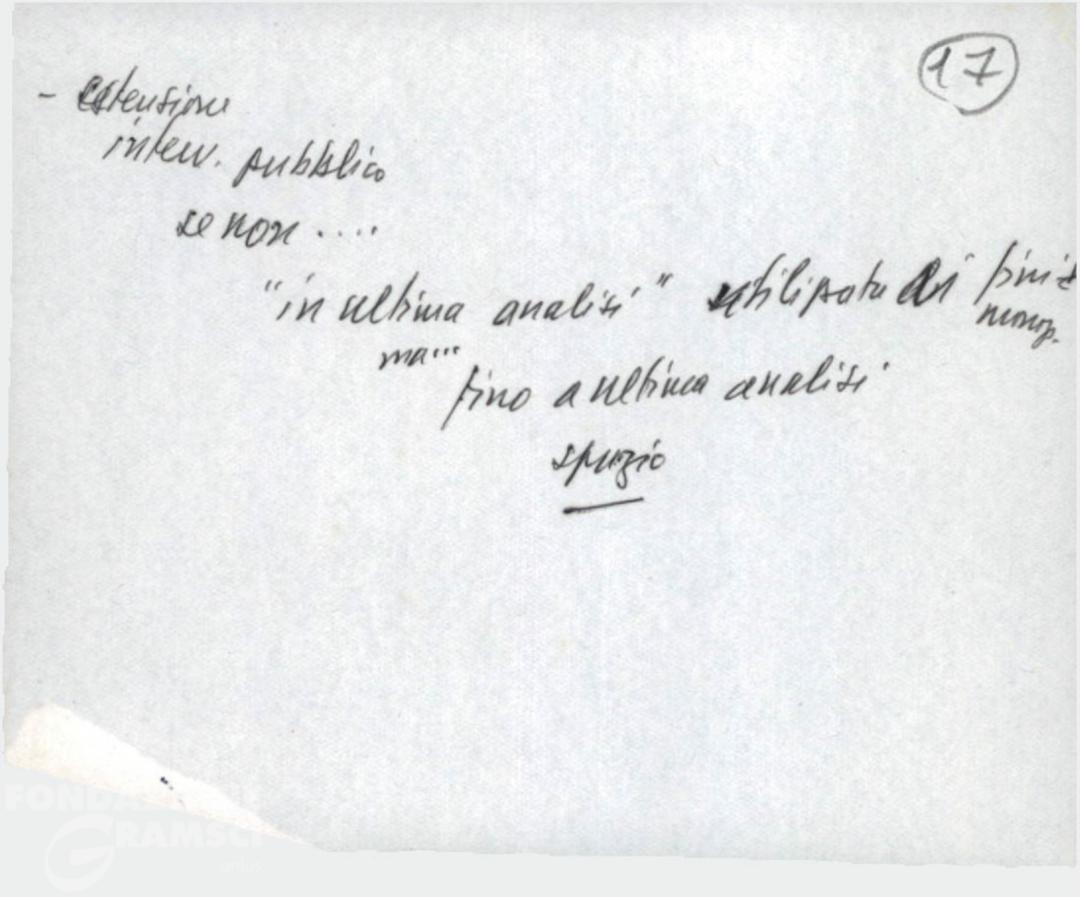 17
- estensione
interv. pubblico
se non ....
"in ultima analisi" utilizzato ai fini
monop.
ma...
fino a ultima analisi
spazio
FONDAZIONE
GRAMSCI